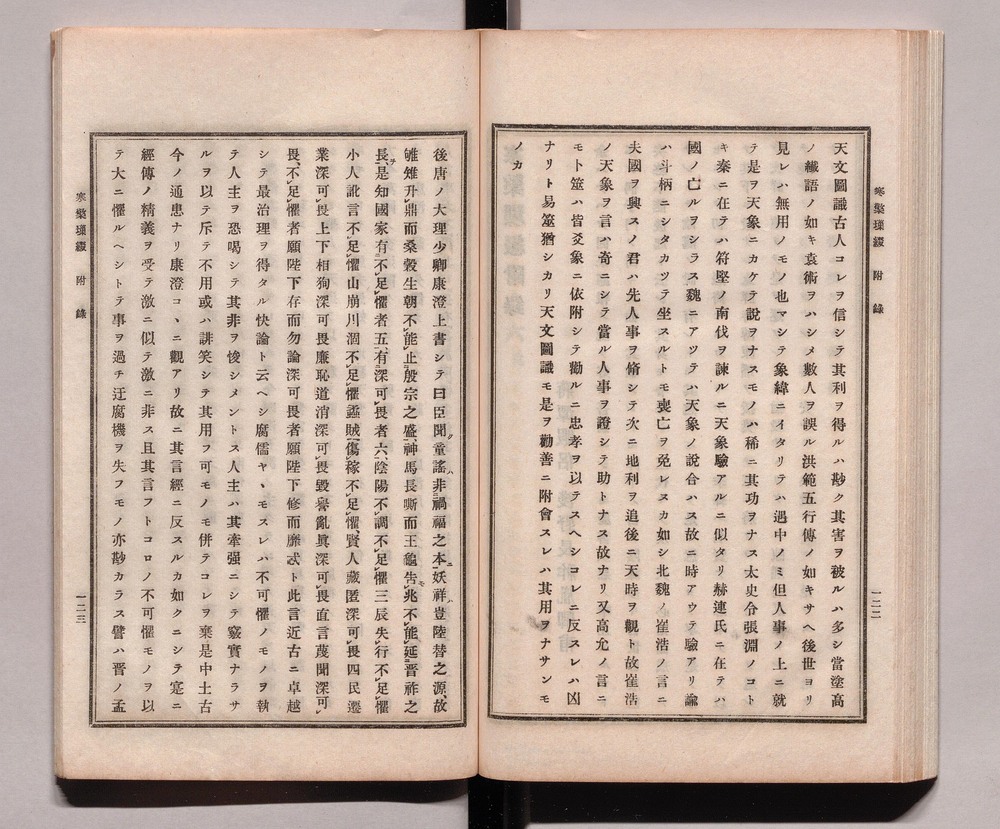 寒檠璅綴 附 錄
一二二
天文圖讖古人コレヲ信シテ其利ヲ得ルハ尠ク其害ヲ被ルハ多シ當塗高
ノ纖語ノ如キ袁術ヲハシメ數人ヲ誤ル洪範五行傳ノ如キサヘ後世ヨリ
見レハ無用ノモノ也マシテ象緯ニイタリテハ過中ノミ但人事ノ上ニ就
テ是ヲ天象ニカケテ說ヲナスモノハ稀ニ其功ヲナス太史令張淵ノコト
キ秦ニ在テハ符堅ノ南伐ヲ諫ルニ天象驗アルニ似タリ赫連氏ニ在テハ
國ノ亡ルヲシラス魏ニアツテハ天象ノ說合ハス故ニ時アウテ驗アリ諭
ハ斗柄ニシタカツテ坐スルトモ喪亡ヲ免レヌカ如シ北魏ノ崔浩ノ言ニ
夫國ヲ興スノ君ハ先人事ヲ脩シテ次ニ地利ヲ追後ニ天時ヲ觀ト故崔浩
ノ天象ヲ言ハ奇ニシテ當ル人事ヲ證シテ助トナス故ナリ又高允ノ言ニ
モト筮ハ皆爻象ニ依附シテ勸ルニ忠孝ヲ以テスヘシコレニ反スレハ凶
ナリト易筮猶シカリ天文圖讖モ是ヲ勸善ニ附會スレハ其用ヲナサンモ
ノカ
後唐ノ大理少卿康澄上書シテ曰臣聞童謠非禍福之本妖祥豈陸替之源故
雊雉升鼎而桑穀生朝不能止殷宗之盛神馬長嘶而王龜告兆不能延晋祚之
長是知國家有不足懼者五有深可畏者六陰陽不調不足懼三辰失行不足懼
小人訛言不足懼山崩川涸不足懼蟊賊傷稼不足懼賢人藏匿深可畏四民遷
業深可畏上下相狥深可畏廉恥道消深可畏毀譽亂眞深可畏直言蔑聞深可
畏不足懼者願陛下存而勿論深可畏者願陛下修而靡忒ト此言近古ニ卓越
シテ最治理ヲ得タル快論ト云ヘシ腐儒ヤヽモスレハ不可懼ノモノヲ執
テ人主ヲ恐喝シテ其非ヲ悛シメントス人主ハ其牽强ニシテ竅實ナラサ
ルヲ以テ斥テ不用或ハ誹笑シテ其用フ可モノモ併テコレヲ棄是中土古
今ノ通患ナリ康澄コヽニ觀アリ故ニ其言經ニ反スルカ如クニシテ寔ニ
經傳ノ精義ヲ受テ激ニ似テ激ニ非ス且其言フトコロノ不可懼モノヲ以
テ大ニ懼ルヘシトテ事ヲ過チ迂腐機ヲ失フモノ亦尠カラス譬ハ晋ノ孟
寒檠璅綴 附 錄
一二三